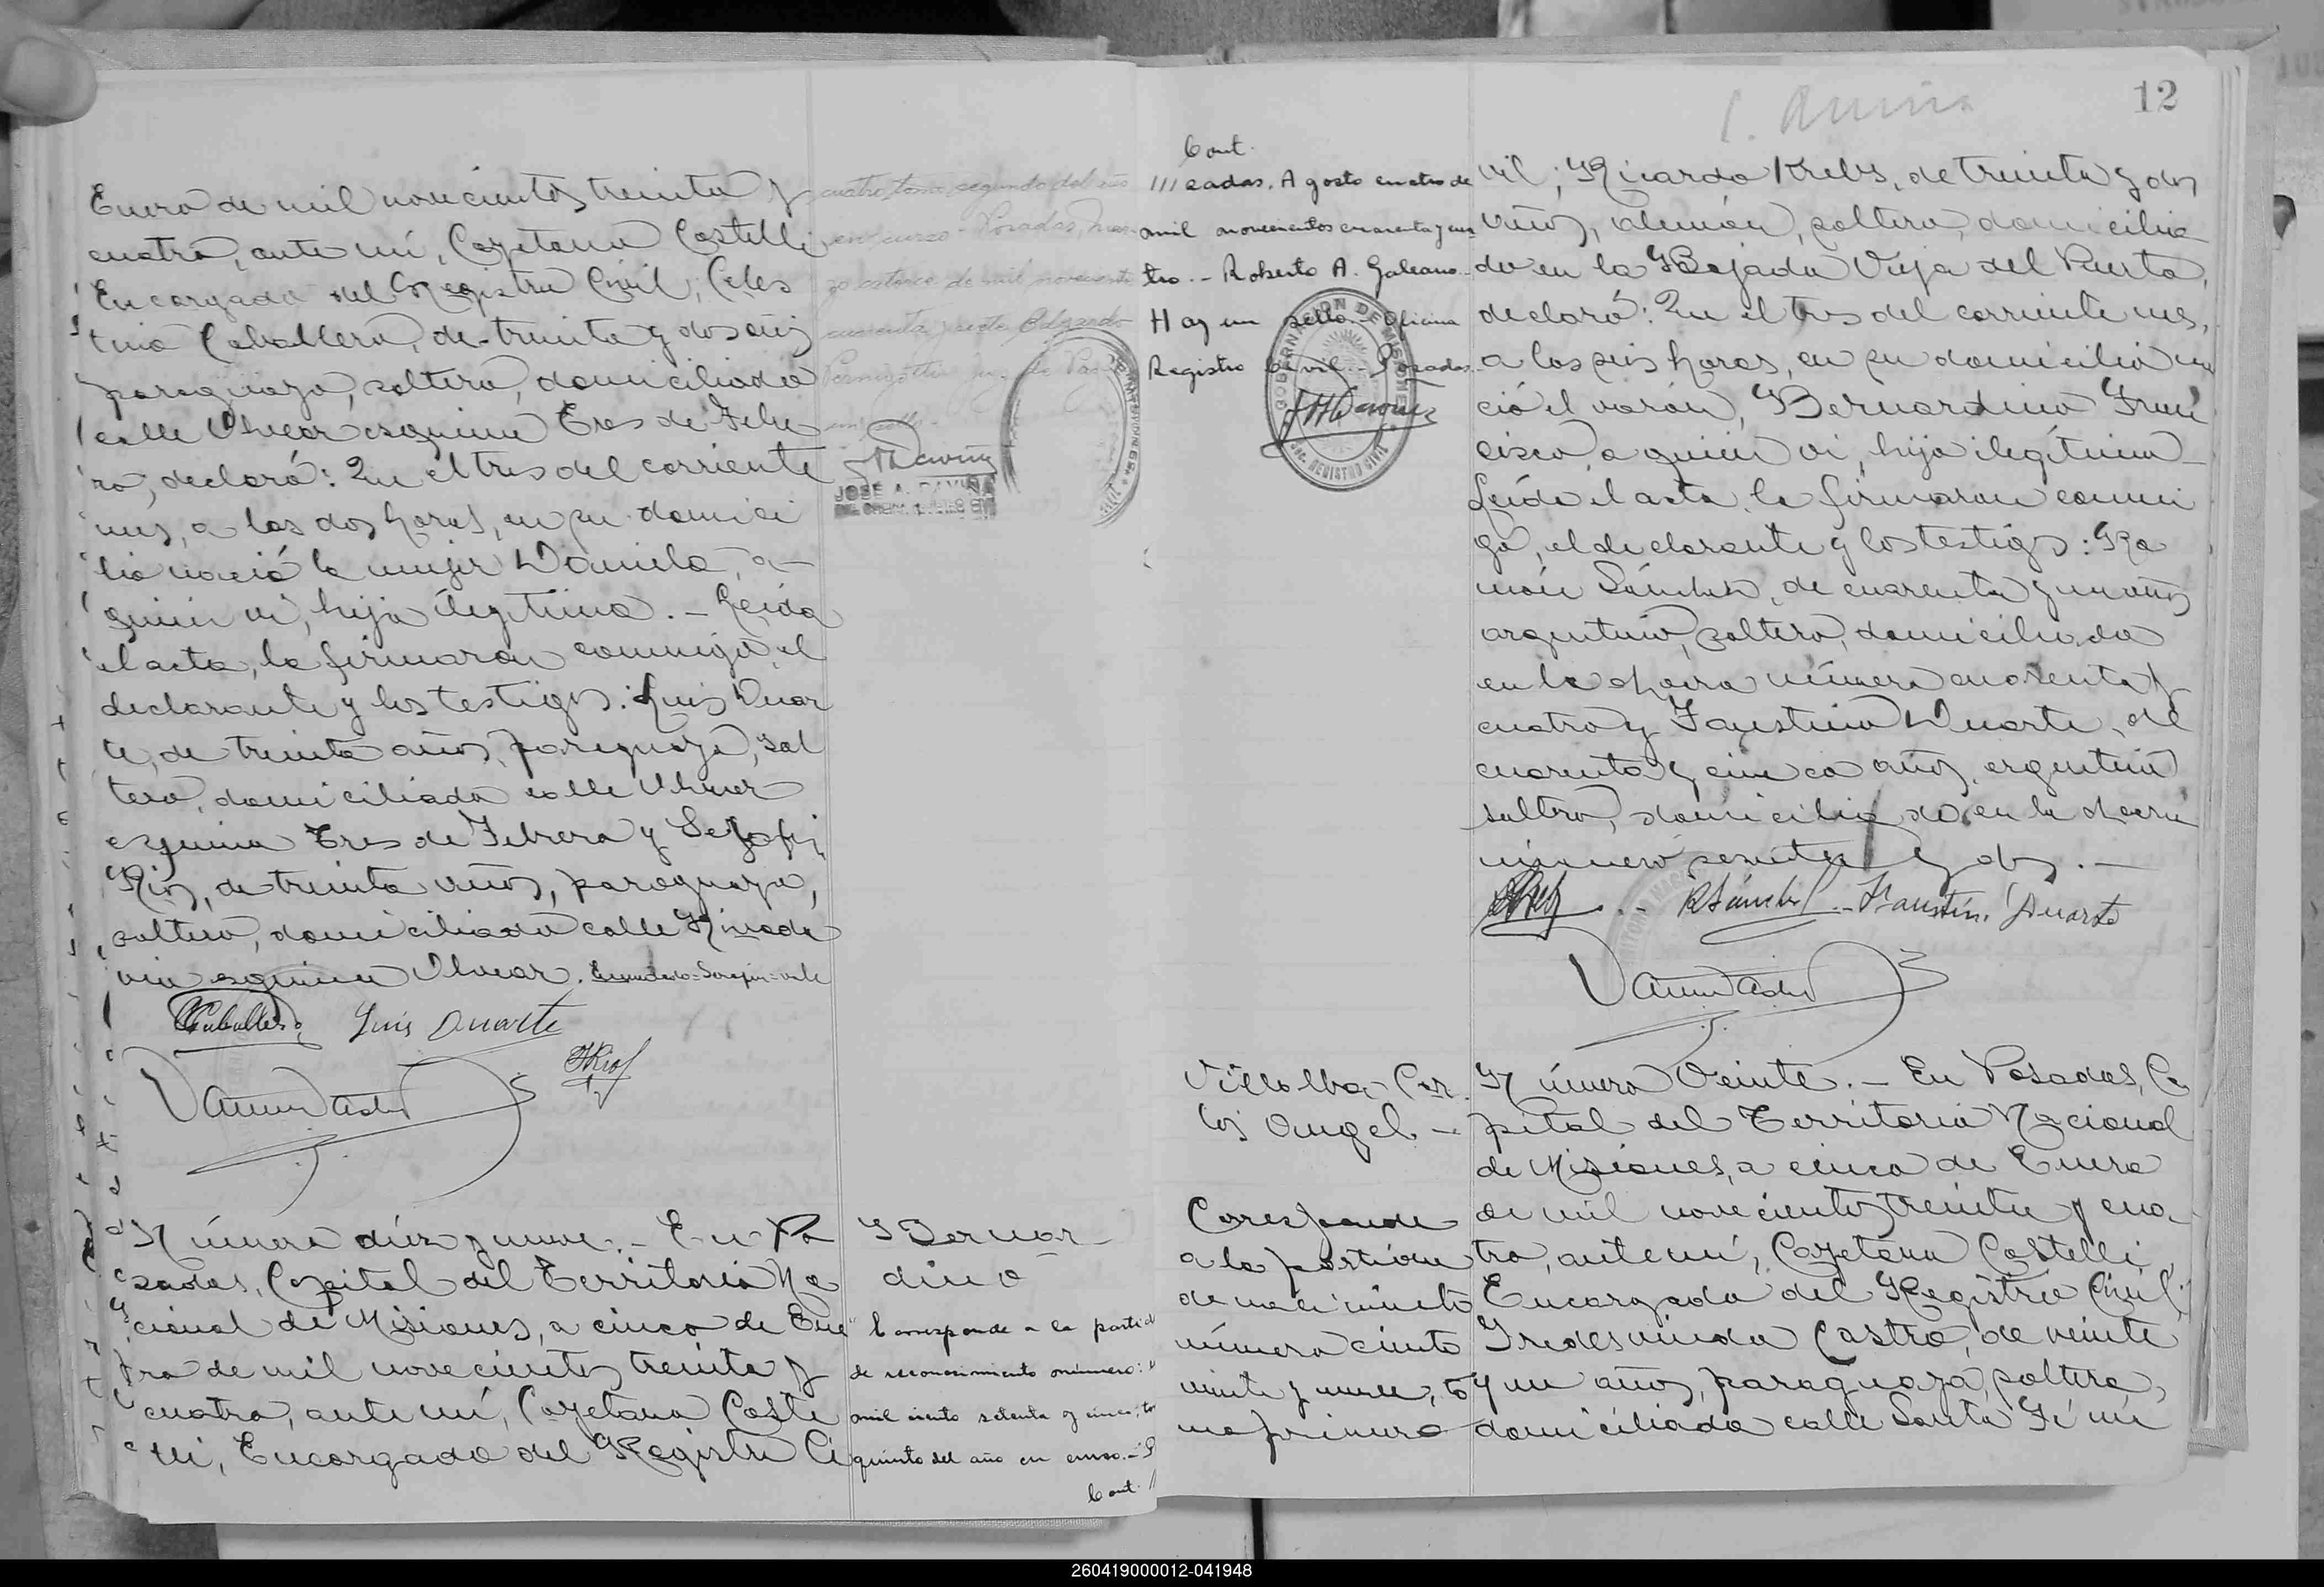 Enero de mil novecientos treinta y
cuatro, ante mí, Cayetano Castelli
Encargado del Registro Civil; Celes
tino Caballero, de treinta y dos años
paraguayo, soltero, domiciliado
calle Alvear esquina Tres de Febre
ro, declaró: Que el tres del corriente
mes, a las dos horas, en su domici
lio nació la mujer Daniela, a
quien vi, hija ilegítima. — Leída
el acta, la firmaron conmigo, el
declarante y los testigos: Luis Duar
te, de treinta años, paraguayo, sol
tero, domiciliado calle Alvear
esquina Tres de Febrero y Serafín
Ríos, de treinta años, paraguayo,
soltero, domiciliado calle Rivada
via esquina Alvear. Enmendado=Serafín=vale
CCaballero Luis Duarte
SRios
Número diez y nueve. — En Po
sadas, Capital del Territorio Na
cional de Misiones, a cinco de Ene
ro de mil novecientos treinta y
cuatro, ante mí, Cayetano Caste
lli, Encargado del Registro Ci
cuatro, tomo segundo del año
en curso - Posadas, Mar
zo catorce de mil novecientos
cuarenta y siete Edgardo
JOSÉ A. DAVIÑA
Bernar
dino
Corresponde a la partida
de reconocimiento número:
mil ciento setenta y cinco, to
quinto del año en curso. - P
Cont. //
Cont.
///sadas, Agosto cuatro de
mil novecientos cuarenta y cua
tro. - Roberto A. Galeano.
Hay un sello. Oficina
Registro Civil. - Posadas.
GOBERNACION DE MISIONES
REGISTRO CIVIL
Villalba, Car
los Angel. —
Corresponde
a la partida
de nacimiento
número ciento
veinte y nueve, to
mo primero
12
vil; Ricardo Krebs, de treinta y dos
años, alemán, soltero, domicilia
do en la Bajada Vieja del Puerto,
declaró: Que el tres del corriente mes,
a las seis horas, en su domicilio na
ció el varón, Bernardino Fran
cisco, a quien vi, hijo ilegítimo
Leída el acta, la firmaron conmi
go, el declarante y los testigos: Ra
món Sánchez, de cuarenta y un años
argentino, soltero, domiciliado
en la chacra número cuarenta y
cuatro y Faustino Duarte, de
cuarenta y cinco años, argentino
soltero, domiciliado en la chacra
número sesenta y dos. —
RSánchez - Faustino Duarte
Número Veinte. — En Posadas, Ca
pital del Territorio Nacional
de Misiones, a cinco de Enero
de mil novecientos treinta y cua
tro, ante mí, Cayetano Castelli
Encargado del Registro Civil;
Fredesvinda Castro, de veinte
y un años, paraguaya, soltera,
domiciliada calle Santa Fé nú
260419000012-041948